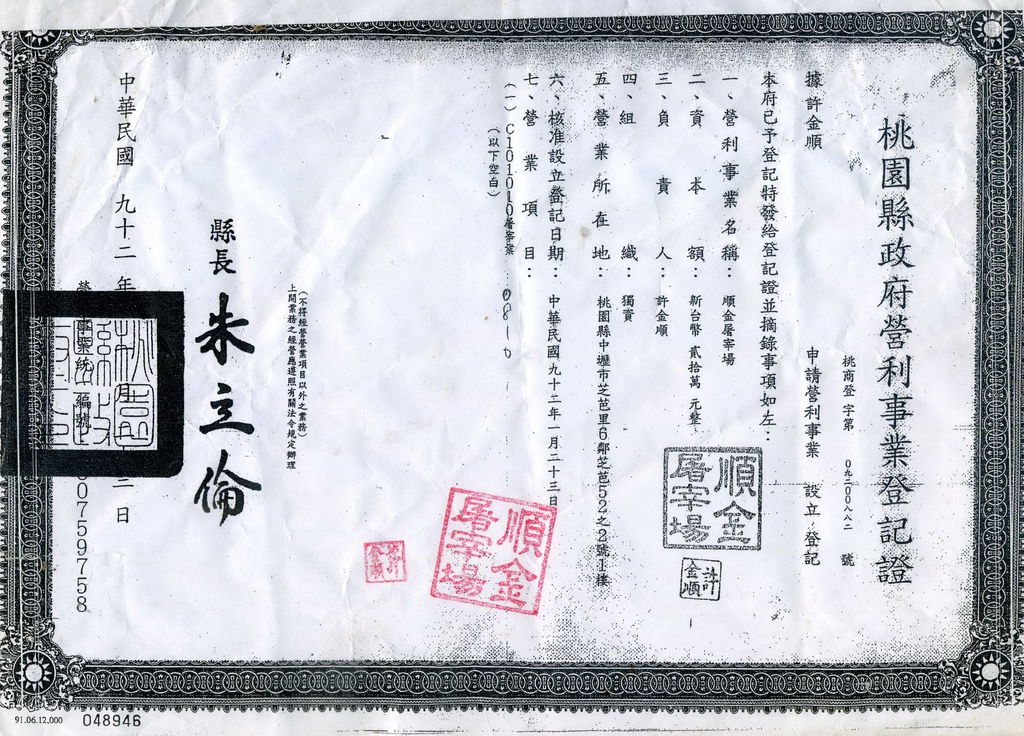 桃園縣政府營利事業登記證
桃商登字第 0九二00八八二 號
據許金順 申請營利事業 設立登記
本府已予登記特發給登記證並摘錄事項如左：
一、營利事業名稱：順金屠宰場
二、資本額：新台幣 貳拾萬 元整
三、負責人：許金順
四、組織：獨資
五、營業所在地：桃園縣中壢市芝芭里6鄰芝芭52之2號1樓
六、核准設立登記日期：中華民國九十二年一月二十三日
七、營業項目：
(一) C101010屠宰業
(以下空白)
0810
(不得經營登記項目以外之業務)
上開業務之經營應遵照有關法令規定辦理
縣長 朱立倫
中華民國 九十二 年 月 日
事業統一編號
00759758
順金屠宰場
許金順
順金屠宰場
91.06.12,000
048946